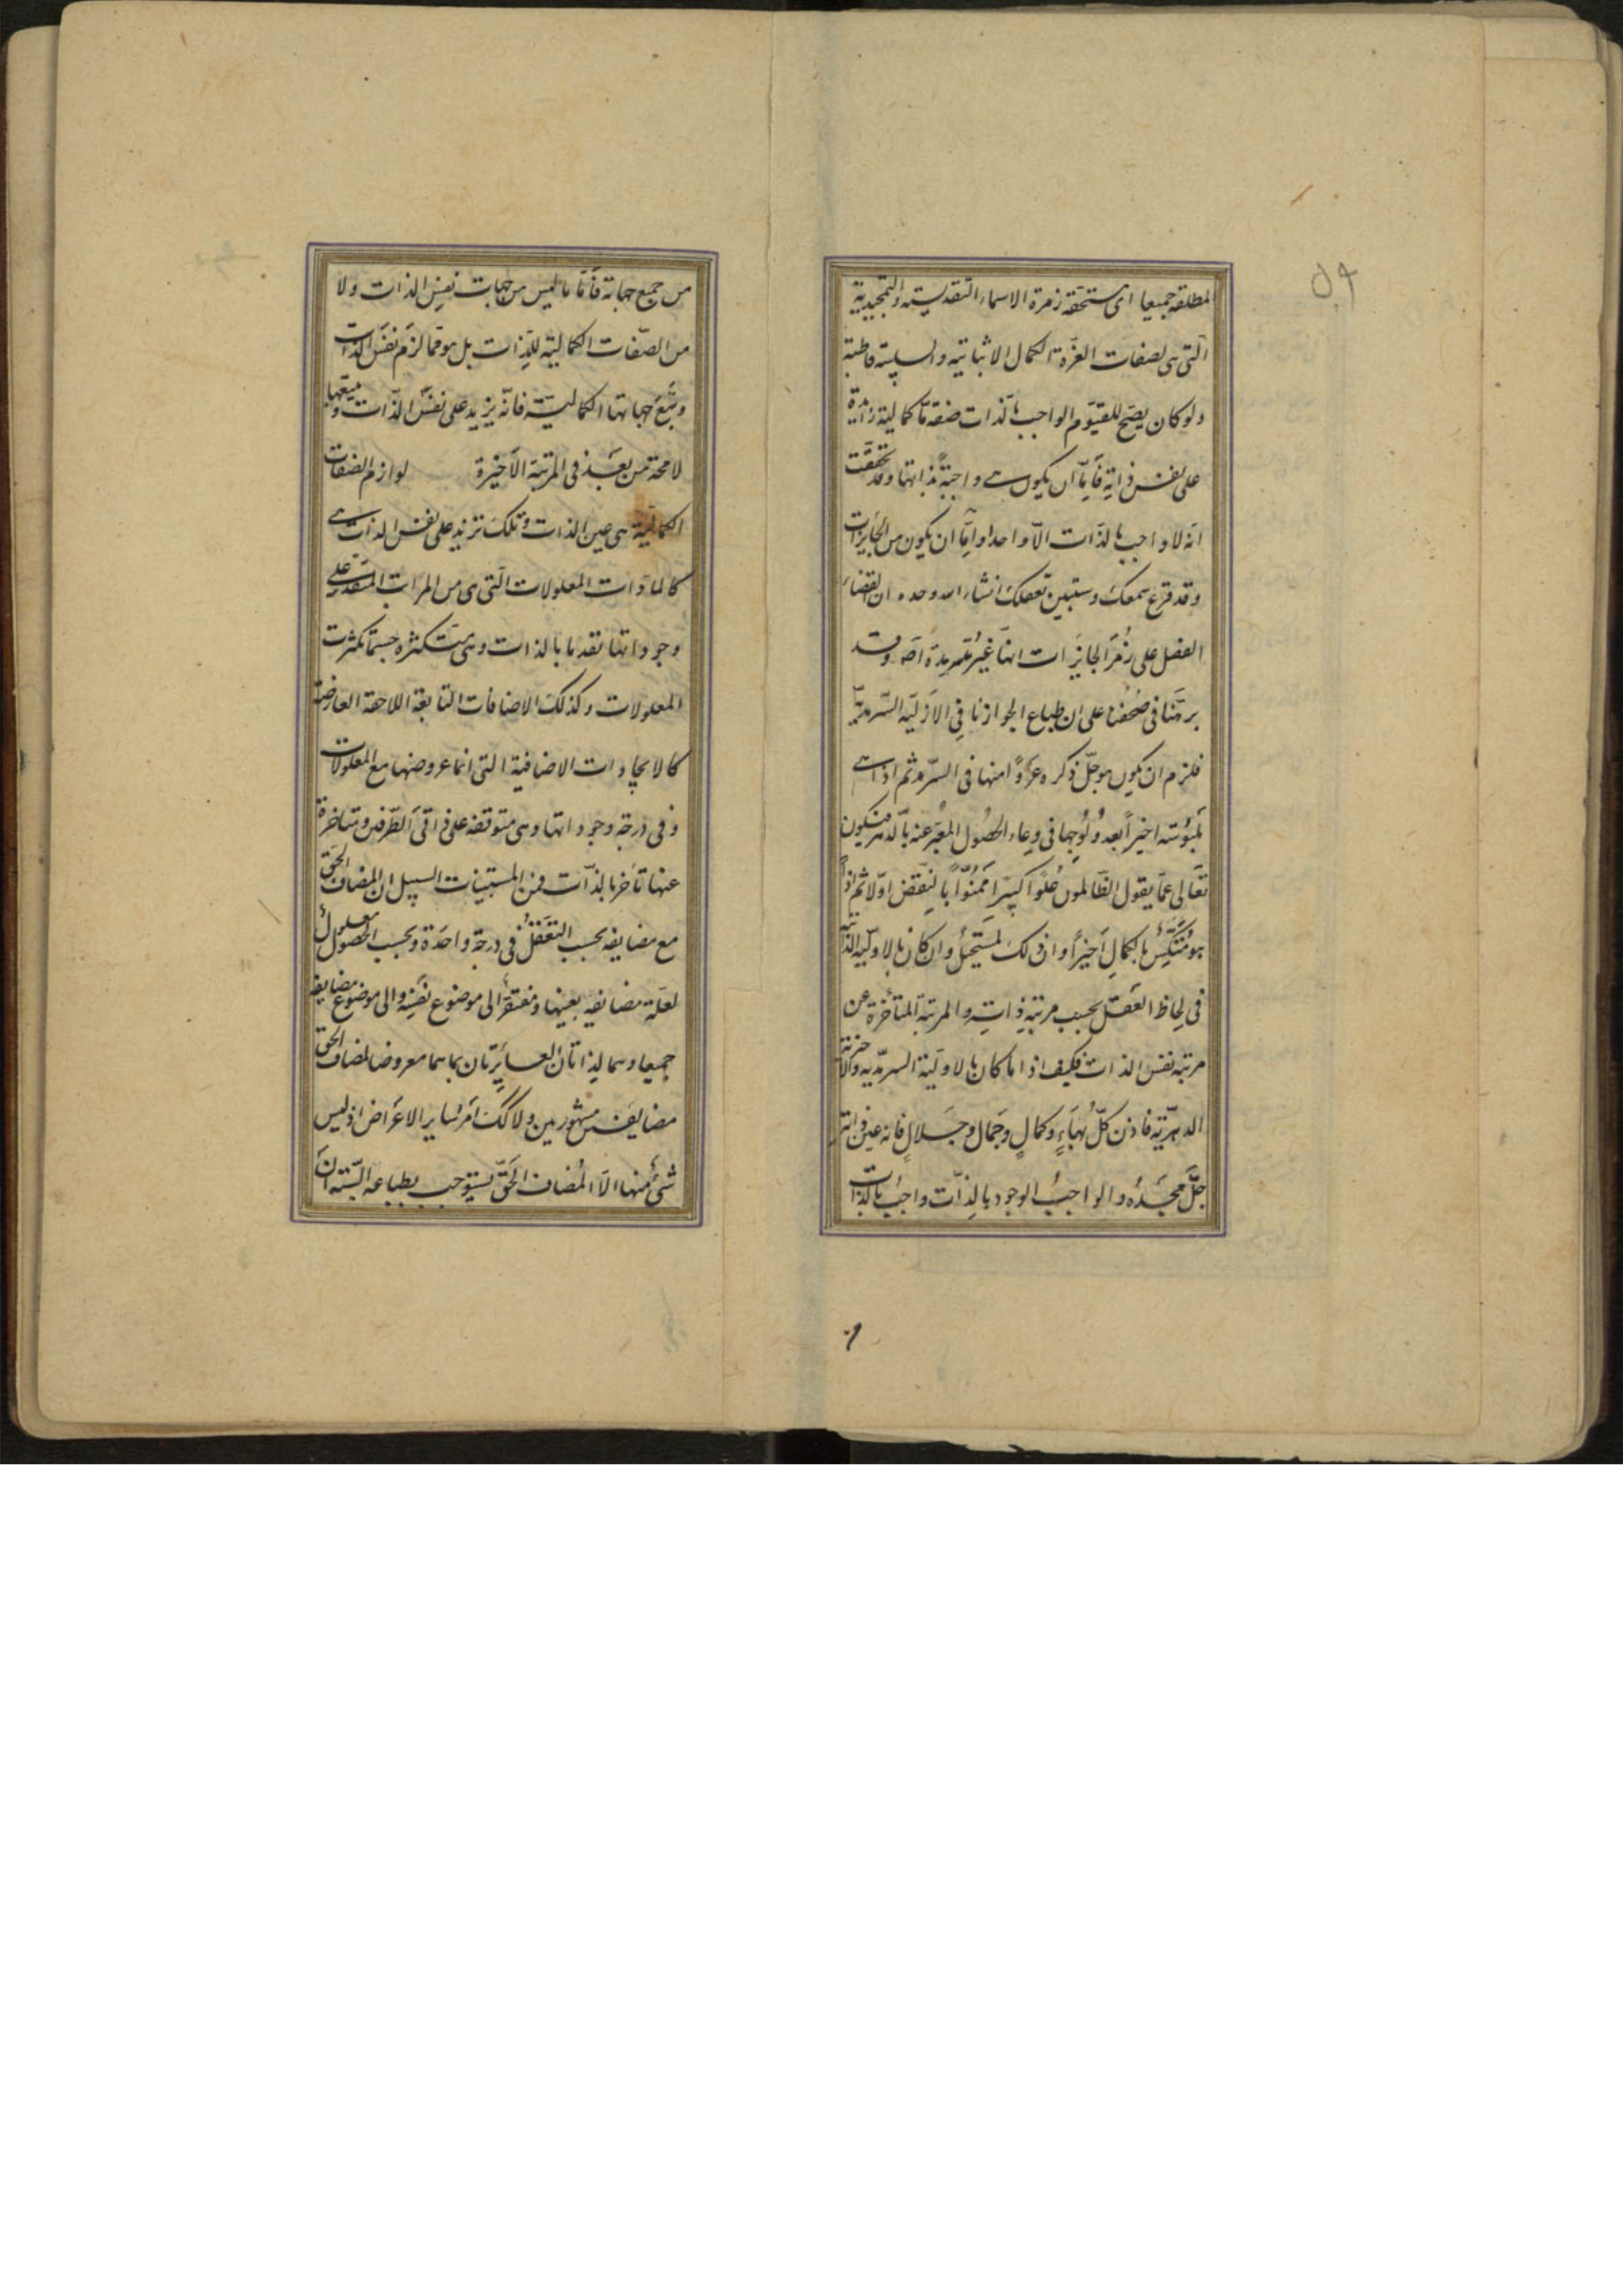 ۵۹
المطلقه جميعا اى مستحقه زمرة الاسماء التقديسيه والتمجيدية
التى هى لصفات العزة الكمال الاثباتيه والسلبيته قاطبته
ولو كان يصح للقيوم الواجب بالذات صفة ما كمالية زايدة
على نفس ذاته فاما ان يكون واجبة بذاتها وقد تحققت
انه لا واجب بالذات الا واحدا واما ان يكون من الجايزات
وقد قرع سمعك وستبين تعقلك انشاء الله وحده ان القضاء
الفصل على زمر الجايزات انها غير سرمدية وقد
برهنا فى صحفنا على ان طباع الجواز نافى الازلية السرمدية
فلزم ان يكون هو جل ذكره عروا منها فى السرمد ثم اذا
تلبوسته اخيرا بعد ولوجها فى وعاء الحصول المعبر عنه بالدهر فيكون
تعالى عما يقول الظالمون علوا كبيرا ممنوا بالنقض اولا ثم اذا
هو بالكمال اخيرا وان ذلك لمستحيل وان كان بالاوليه الذاتية
فى لحاظ العقل بحسب مرتبة ذاته والمرتبة المتأخرة عن
مرتبه نفس الذات فكيف اذا ما كان بالاولية السرمديه والاخرية
الدهرية فاذن كل بهاء وكمال وجمال وجلال فانه عين ذاته
جل مجده والواجب الوجود بالذات واجب بالذات
من جميع جهاته فاما ما ليس من جهات نفس الذات ولا
من الصفات الكمالية للذات بل هو مما لزم نفس الذات
وتبع جهاتها الكمالية فانه يزيد على نفس الذات ويتبعها
لا محة من بعد فى المرتبة الاخيرة لوازم الصفات
الكمالية هى عين الذات وتلك تزيد على نفس الذات
كالمباد‌ات المعلولات التى هى من المرات المتقدمة على
وجوداتها تقدما بالذات وهى متكثره حسبما تكثرت
المعلولات وكذلك الاضافات التابعة اللاحقة العارضة
كالايجادات الاضافية التى انما عروضها مع المعلولات
وفى درجة وجوداتها وهى متوقفه على ذاتى الطرفين ومتاخرة
عنها تأخر بالذات فمن المستبينات السبيل ان المضاف الحق
مع مضايفه بحسب التعقل فى درجة واحدة وبحسب الحصول معلول
لعلة مضايفه بعينها ومفتقر الى موضوع نفسه والى موضوع مضايفه
جميعا وهما الذاتان الصايرتان بما هما معروضا المضاف الحق
مضايفين مشهورين ولا كك امر ساير الاعراض اذ ليس
شئ منها الا المضاف الحق يستوجب بطباعه البتة ان